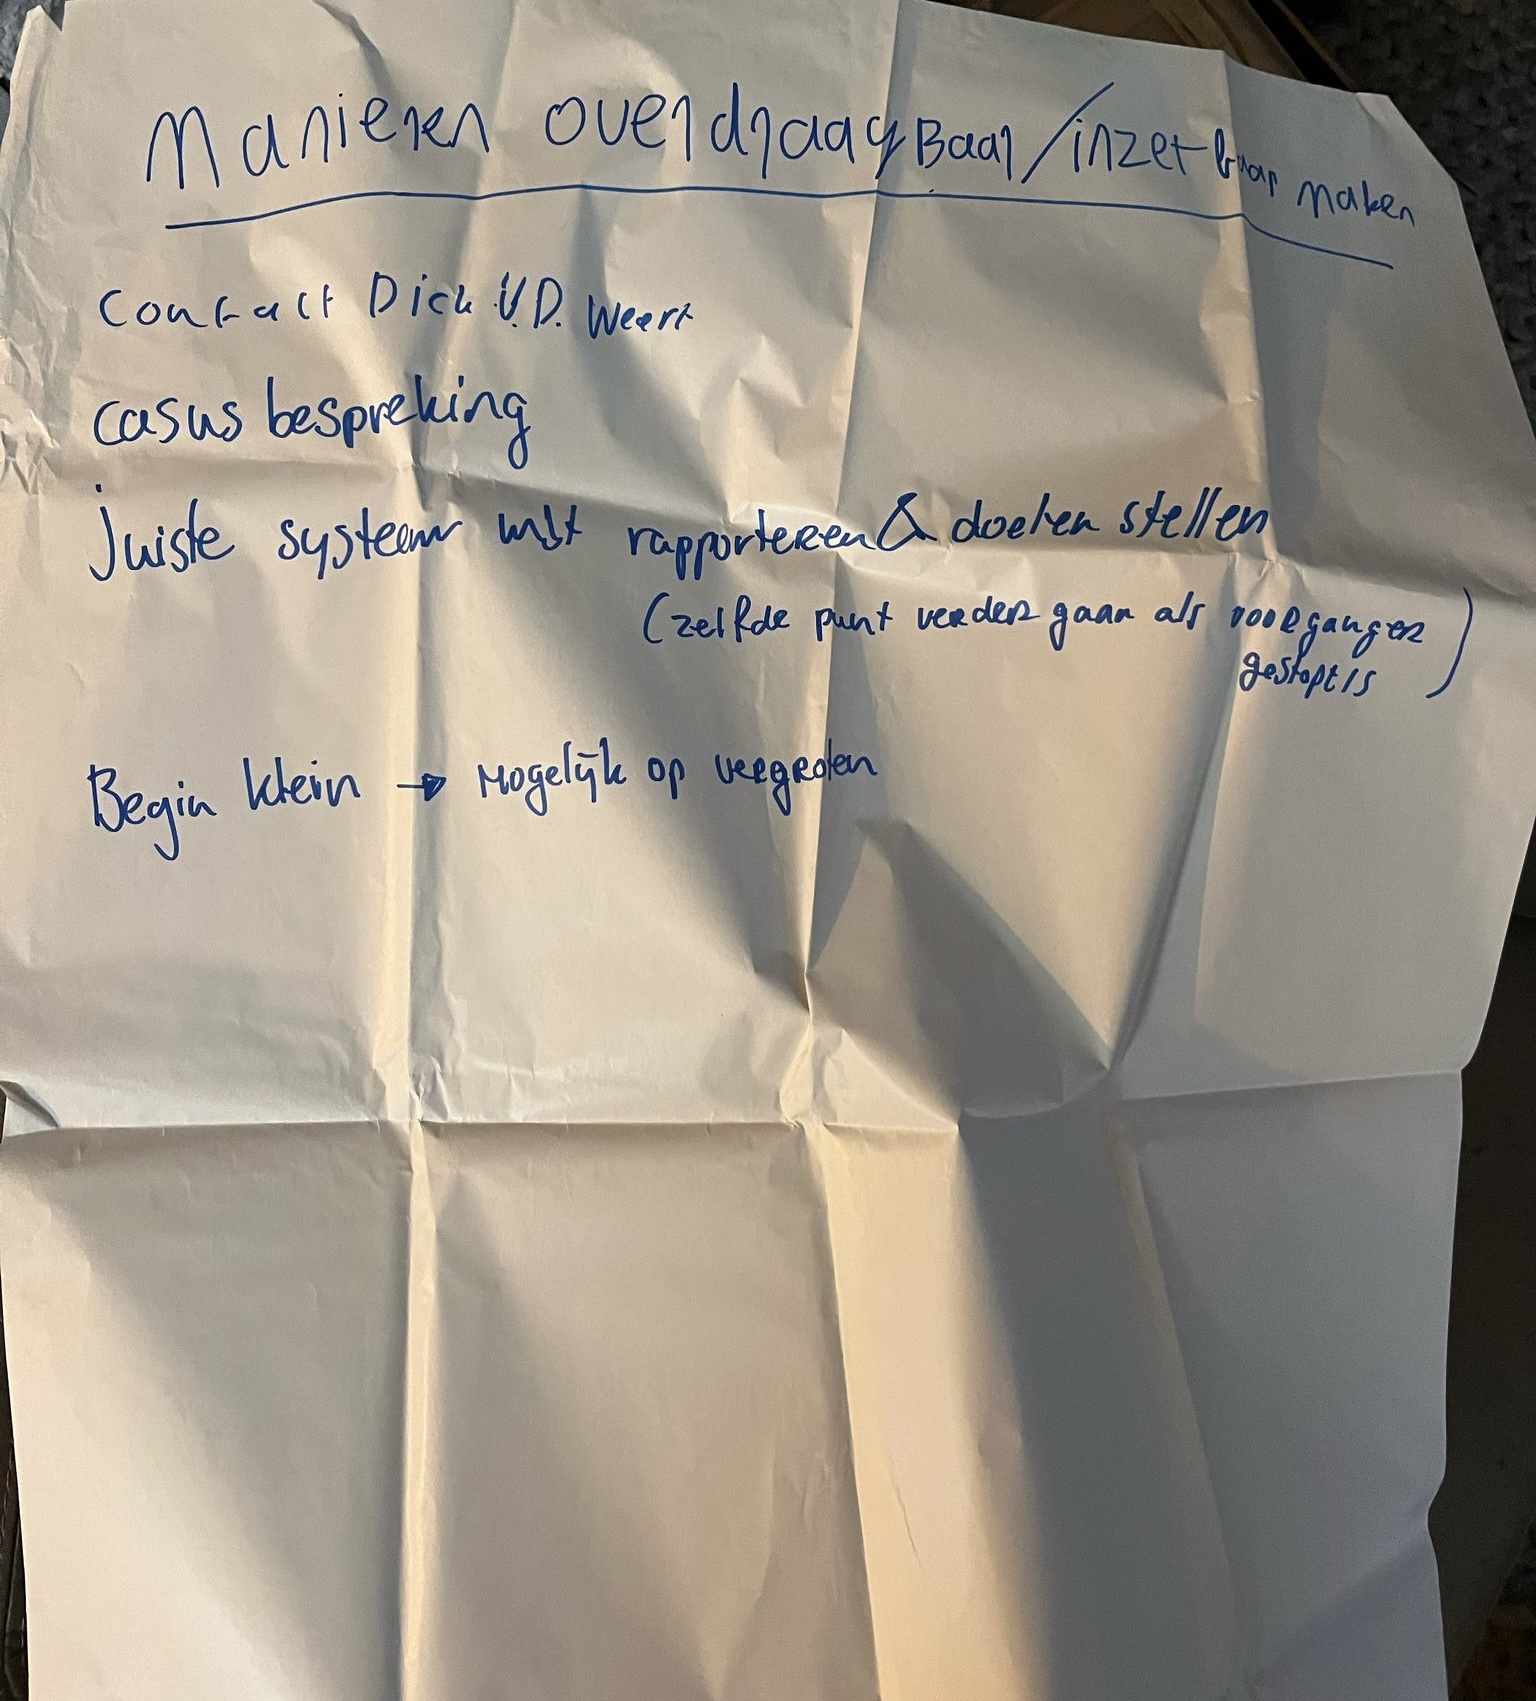 Manieren overdraagBaar/inzetbaar maken
Contact Dick V.D. Weert
casus bespreking
juiste systeem mbt rapporteren & doelen stellen
(zelfde punt verder gaan als voorganger
gestopt is)
Begin klein → Mogelijk op vergroten